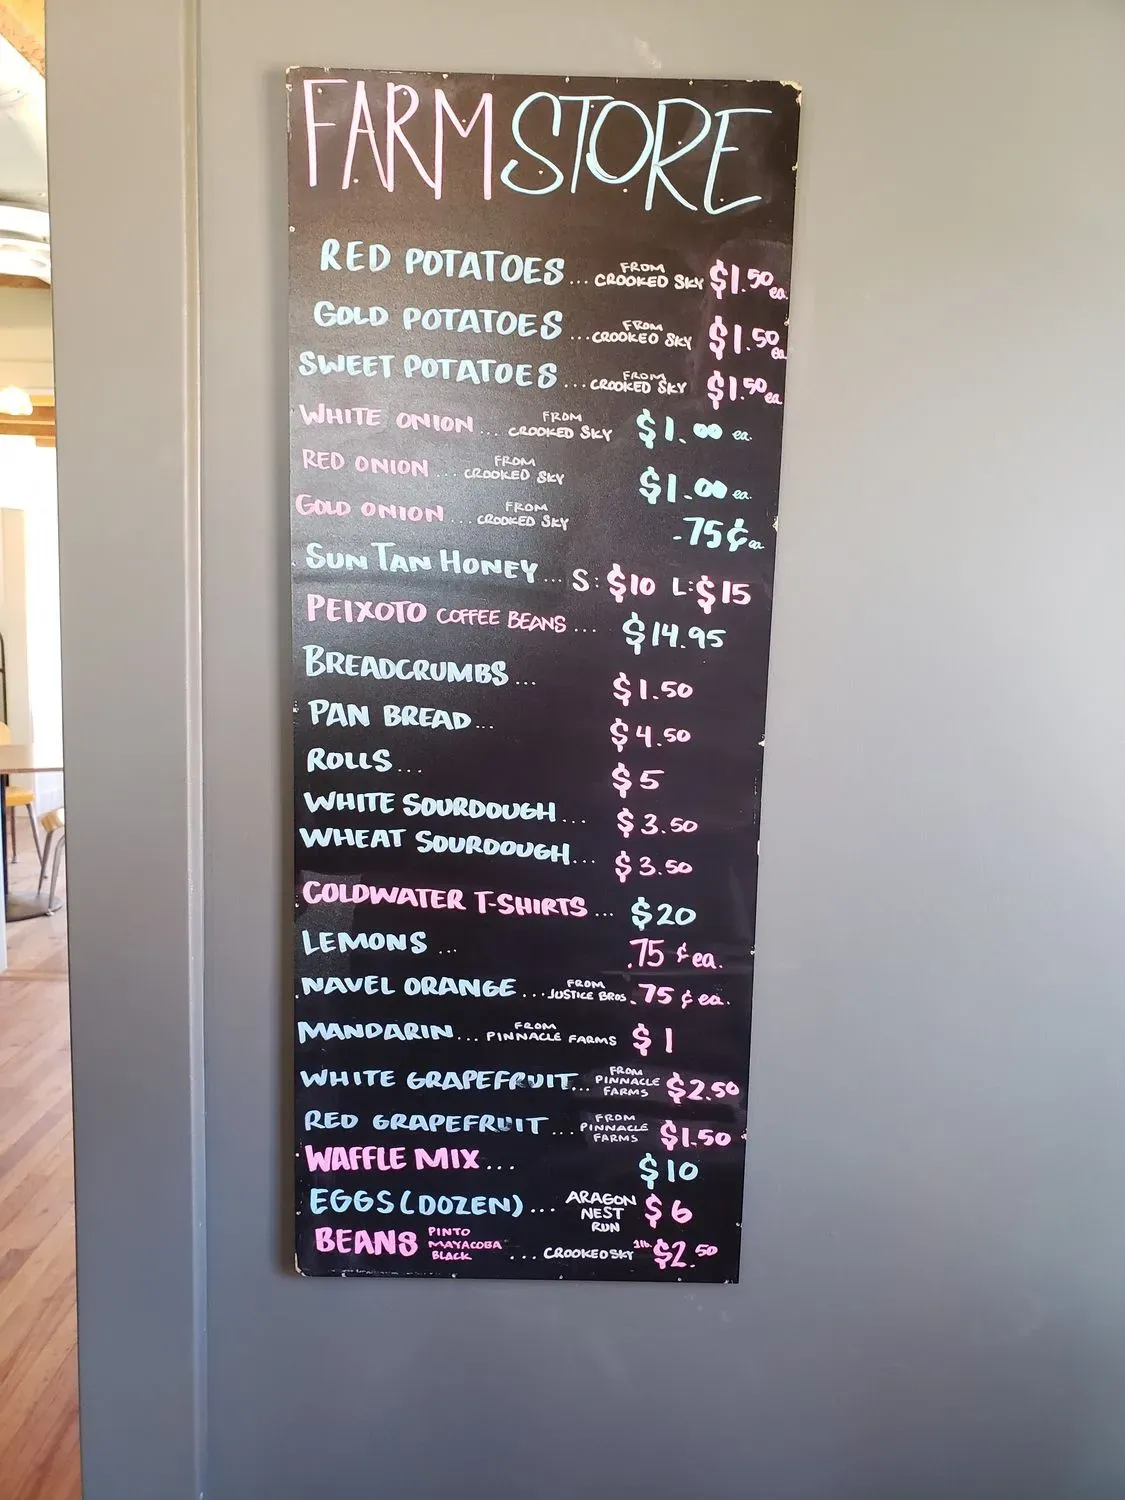 FARM STORE
RED POTATOES... FROM CROOKED SKY $1.50 ea.
GOLD POTATOES ...FROM CROOKED SKY $1.50 ea.
SWEET POTATOES ...FROM CROOKED SKY $1.50 ea.
WHITE ONION ... FROM CROOKED SKY $1.00 ea.
RED ONION ... FROM CROOKED SKY $1.00 ea.
GOLD ONION ... FROM CROOKED SKY .75¢ ea.
SUN TAN HONEY... S: $10 L: $15
PEIXOTO COFFEE BEANS ... $14.95
BREADCRUMBS ... $1.50
PAN BREAD ... $4.50
ROLLS ... $5
WHITE SOURDOUGH ... $3.50
WHEAT SOURDOUGH... $3.50
COLDWATER T-SHIRTS ... $20
LEMONS ... .75 ¢ ea.
NAVEL ORANGE ... FROM JUSTICE BROS. .75 ¢ ea.
MANDARIN ... FROM PINNACLE FARMS $1
WHITE GRAPEFRUIT... FROM PINNACLE FARMS $2.50
RED GRAPEFRUIT ... FROM PINNACLE FARMS $1.50
WAFFLE MIX ... $10
EGGS (DOZEN) ... ARAGON NEST RUN $6
BEANS PINTO MAYACOBA BLACK ... CROOKED SKY 1lb. $2.50